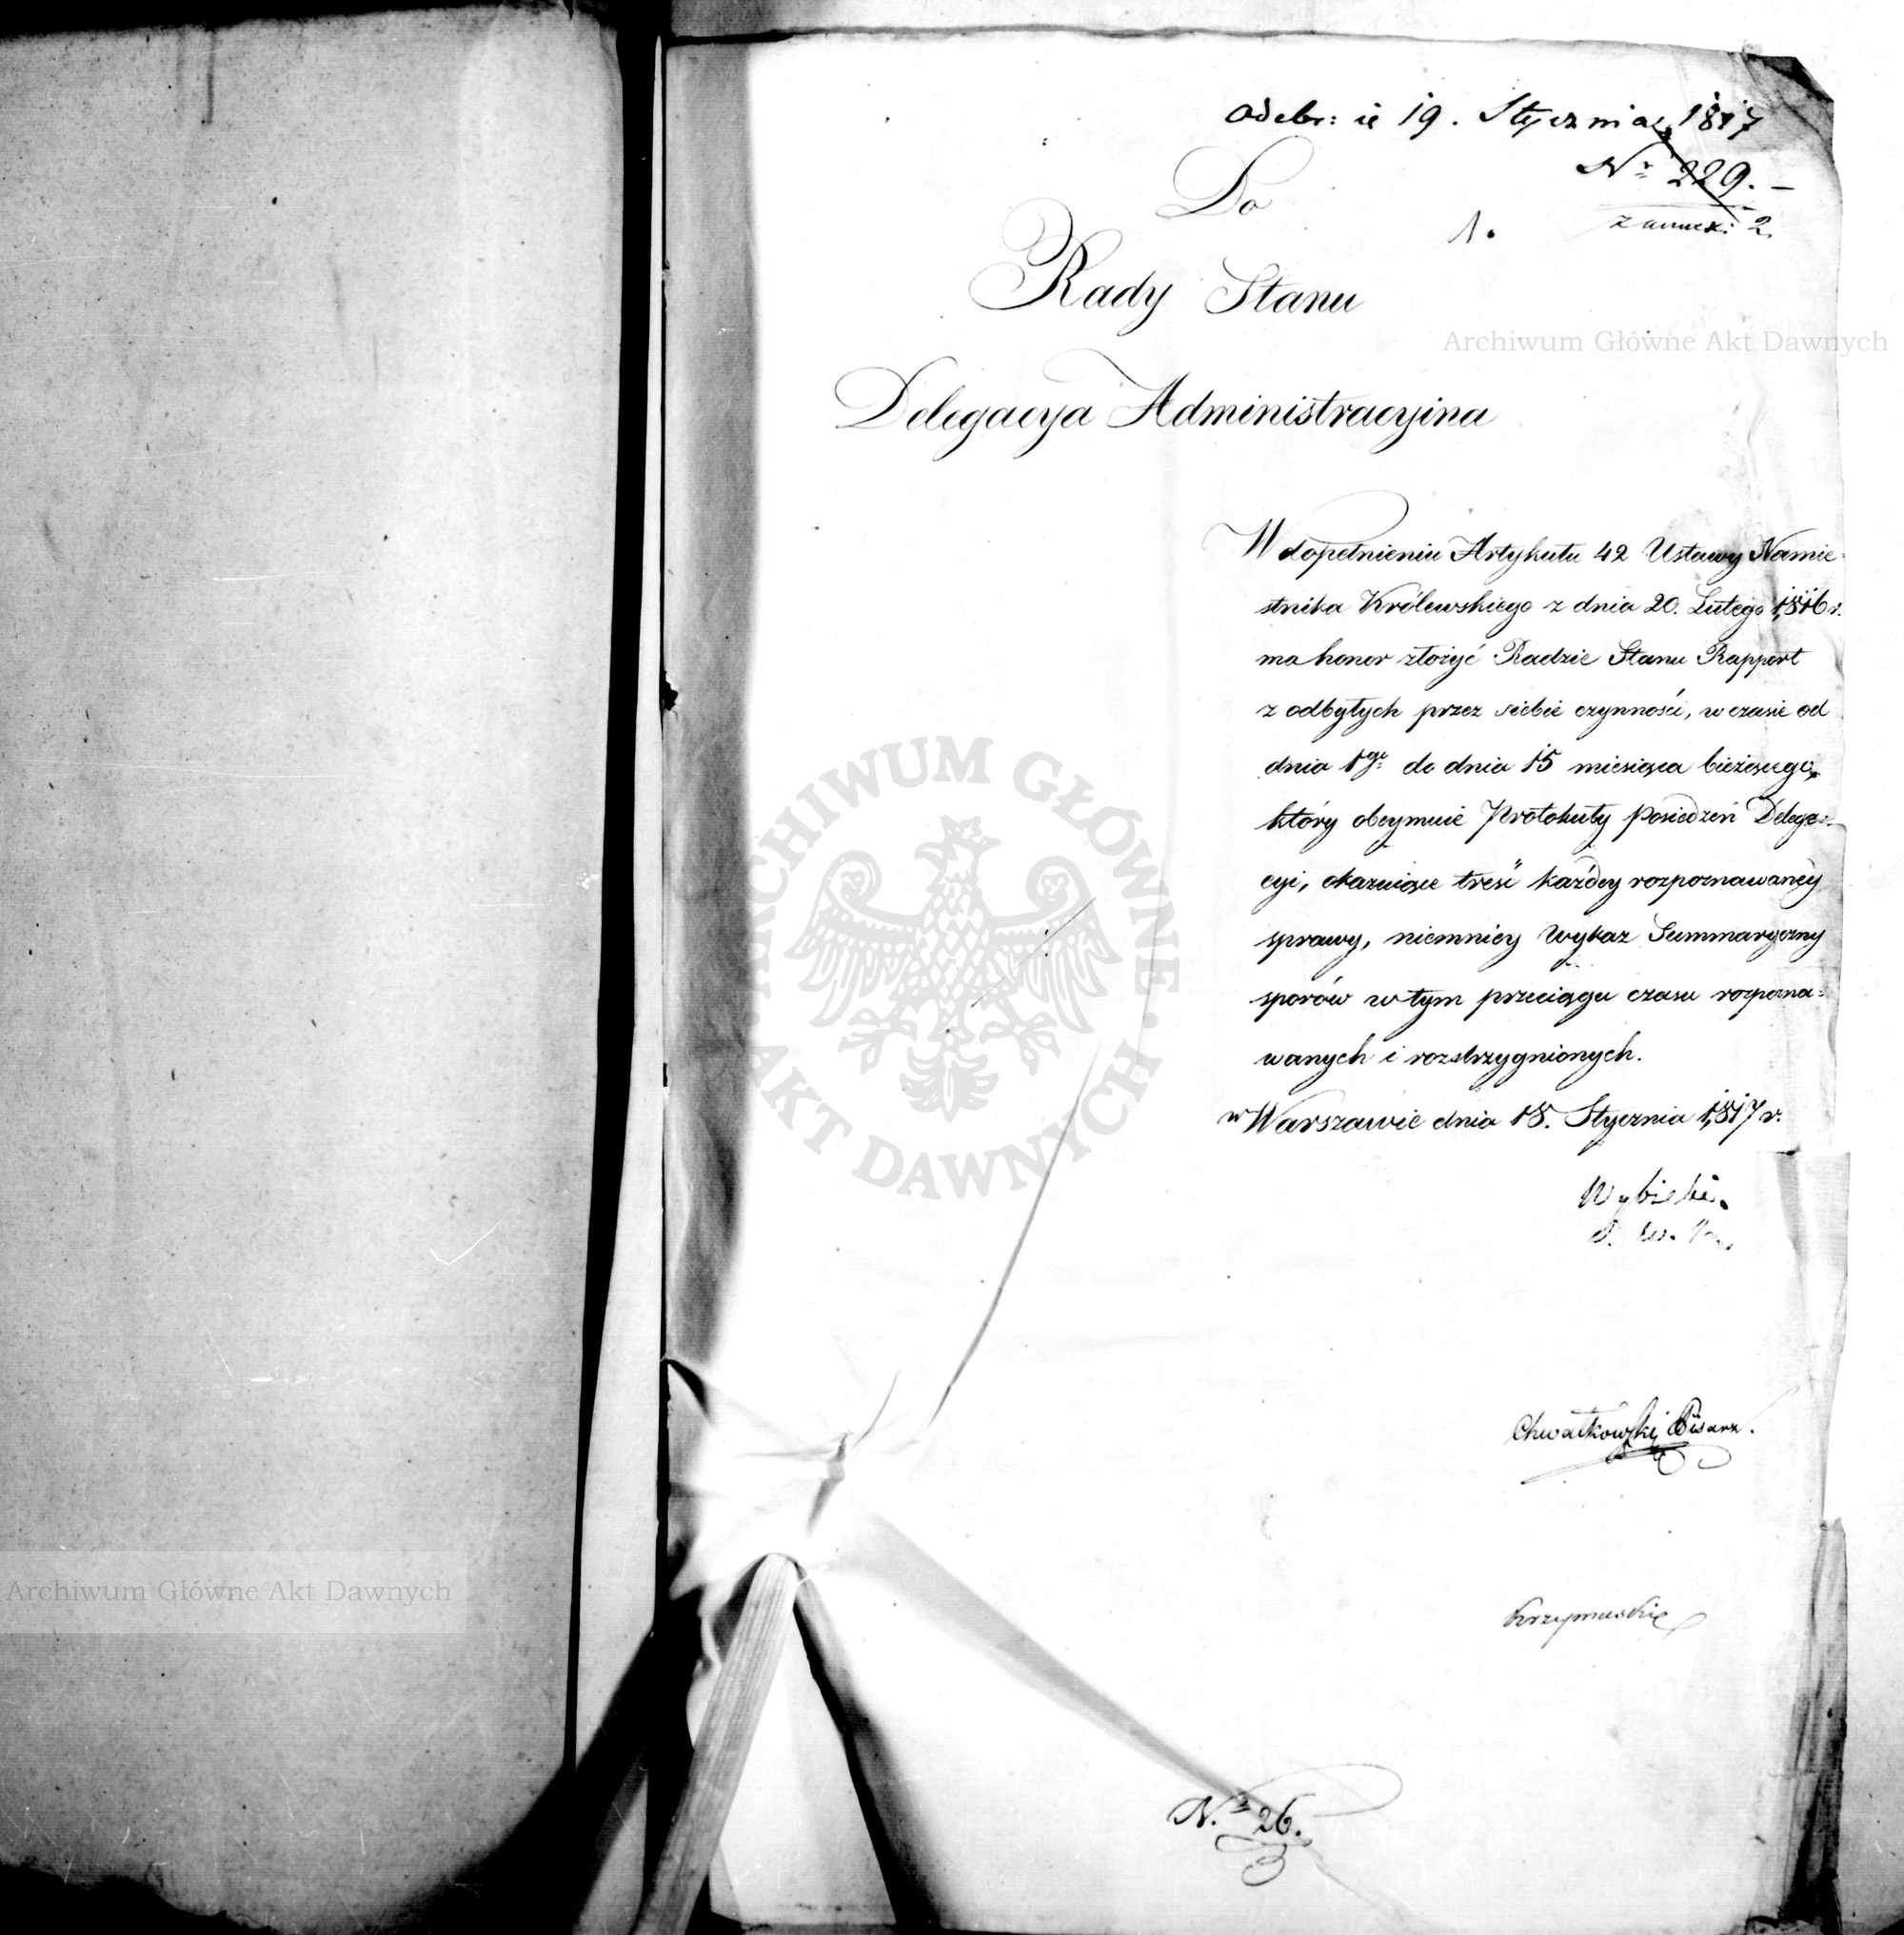 Odebr: ie 19. Stycznia 1817
Nr 229. –
z annex: 2.
1.
Do
Rady Stanu
Archiwum Główne Akt Dawnych
Delegacya Administracyina
W dopełnieniu Artykułu 42 Ustawy Namie-
stnika Królewskiego z dnia 20. Lutego 1,816 r.
ma honor złożyć Radzie Stanu Rapport
z odbytych przez siebie czynności, w czasie od
dnia 1go do dnia 15 miesiąca bieżącego,
który obeymuie Protokuły Posiedzeń Delega-
cyi, okazuiące treść każdey rozpoznawaney
sprawy, niemniey Wykaz Summaryczny
sporów w tym przeciągu czasu rozpozna-
wanych i rozstrzygnionych.
w Warszawie dnia 18. Stycznia 1,817 r.
ARCHIWUM GŁÓWNE AKT DAWNYCH
Wybicki.
Chwałkowski Pisarz.
Archiwum Główne Akt Dawnych
Krzymuski
Nr 26.